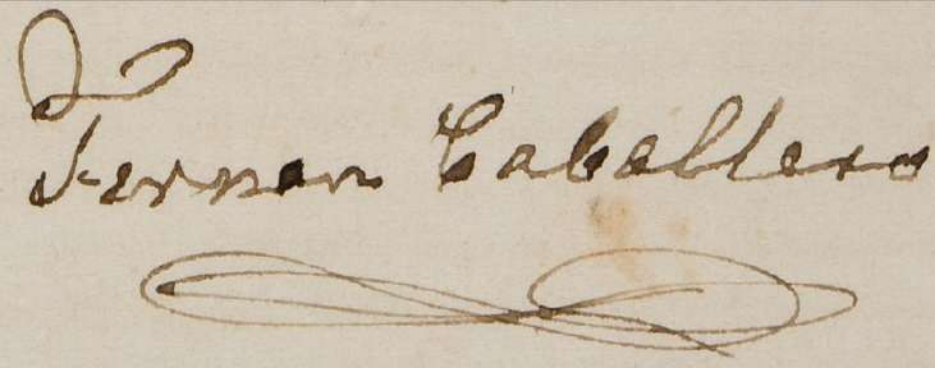 Fernan Caballero